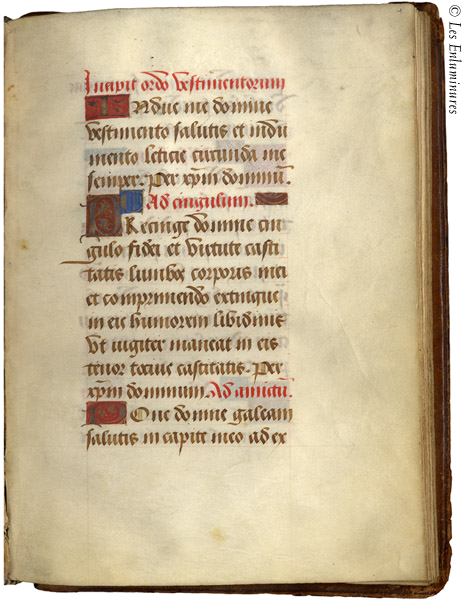 Incipit ordo vestimentorum
INdue me domine
vestimento salutis et indu
mento leticie circunda me
semper. Per xpm dominu.
Ad cingulum.
PRecinge domine cin
gulo fidei et virtute casti
tatis lumbos corporis mei
et comprimendo extingue
in eis humorem libidinis
vt iugiter maneat in eis
tenor tocius castitatis. Per
xpm dominum. Ad amictu.
POne domine galeam
salutis in capite meo ad ex
© Les Enluminures